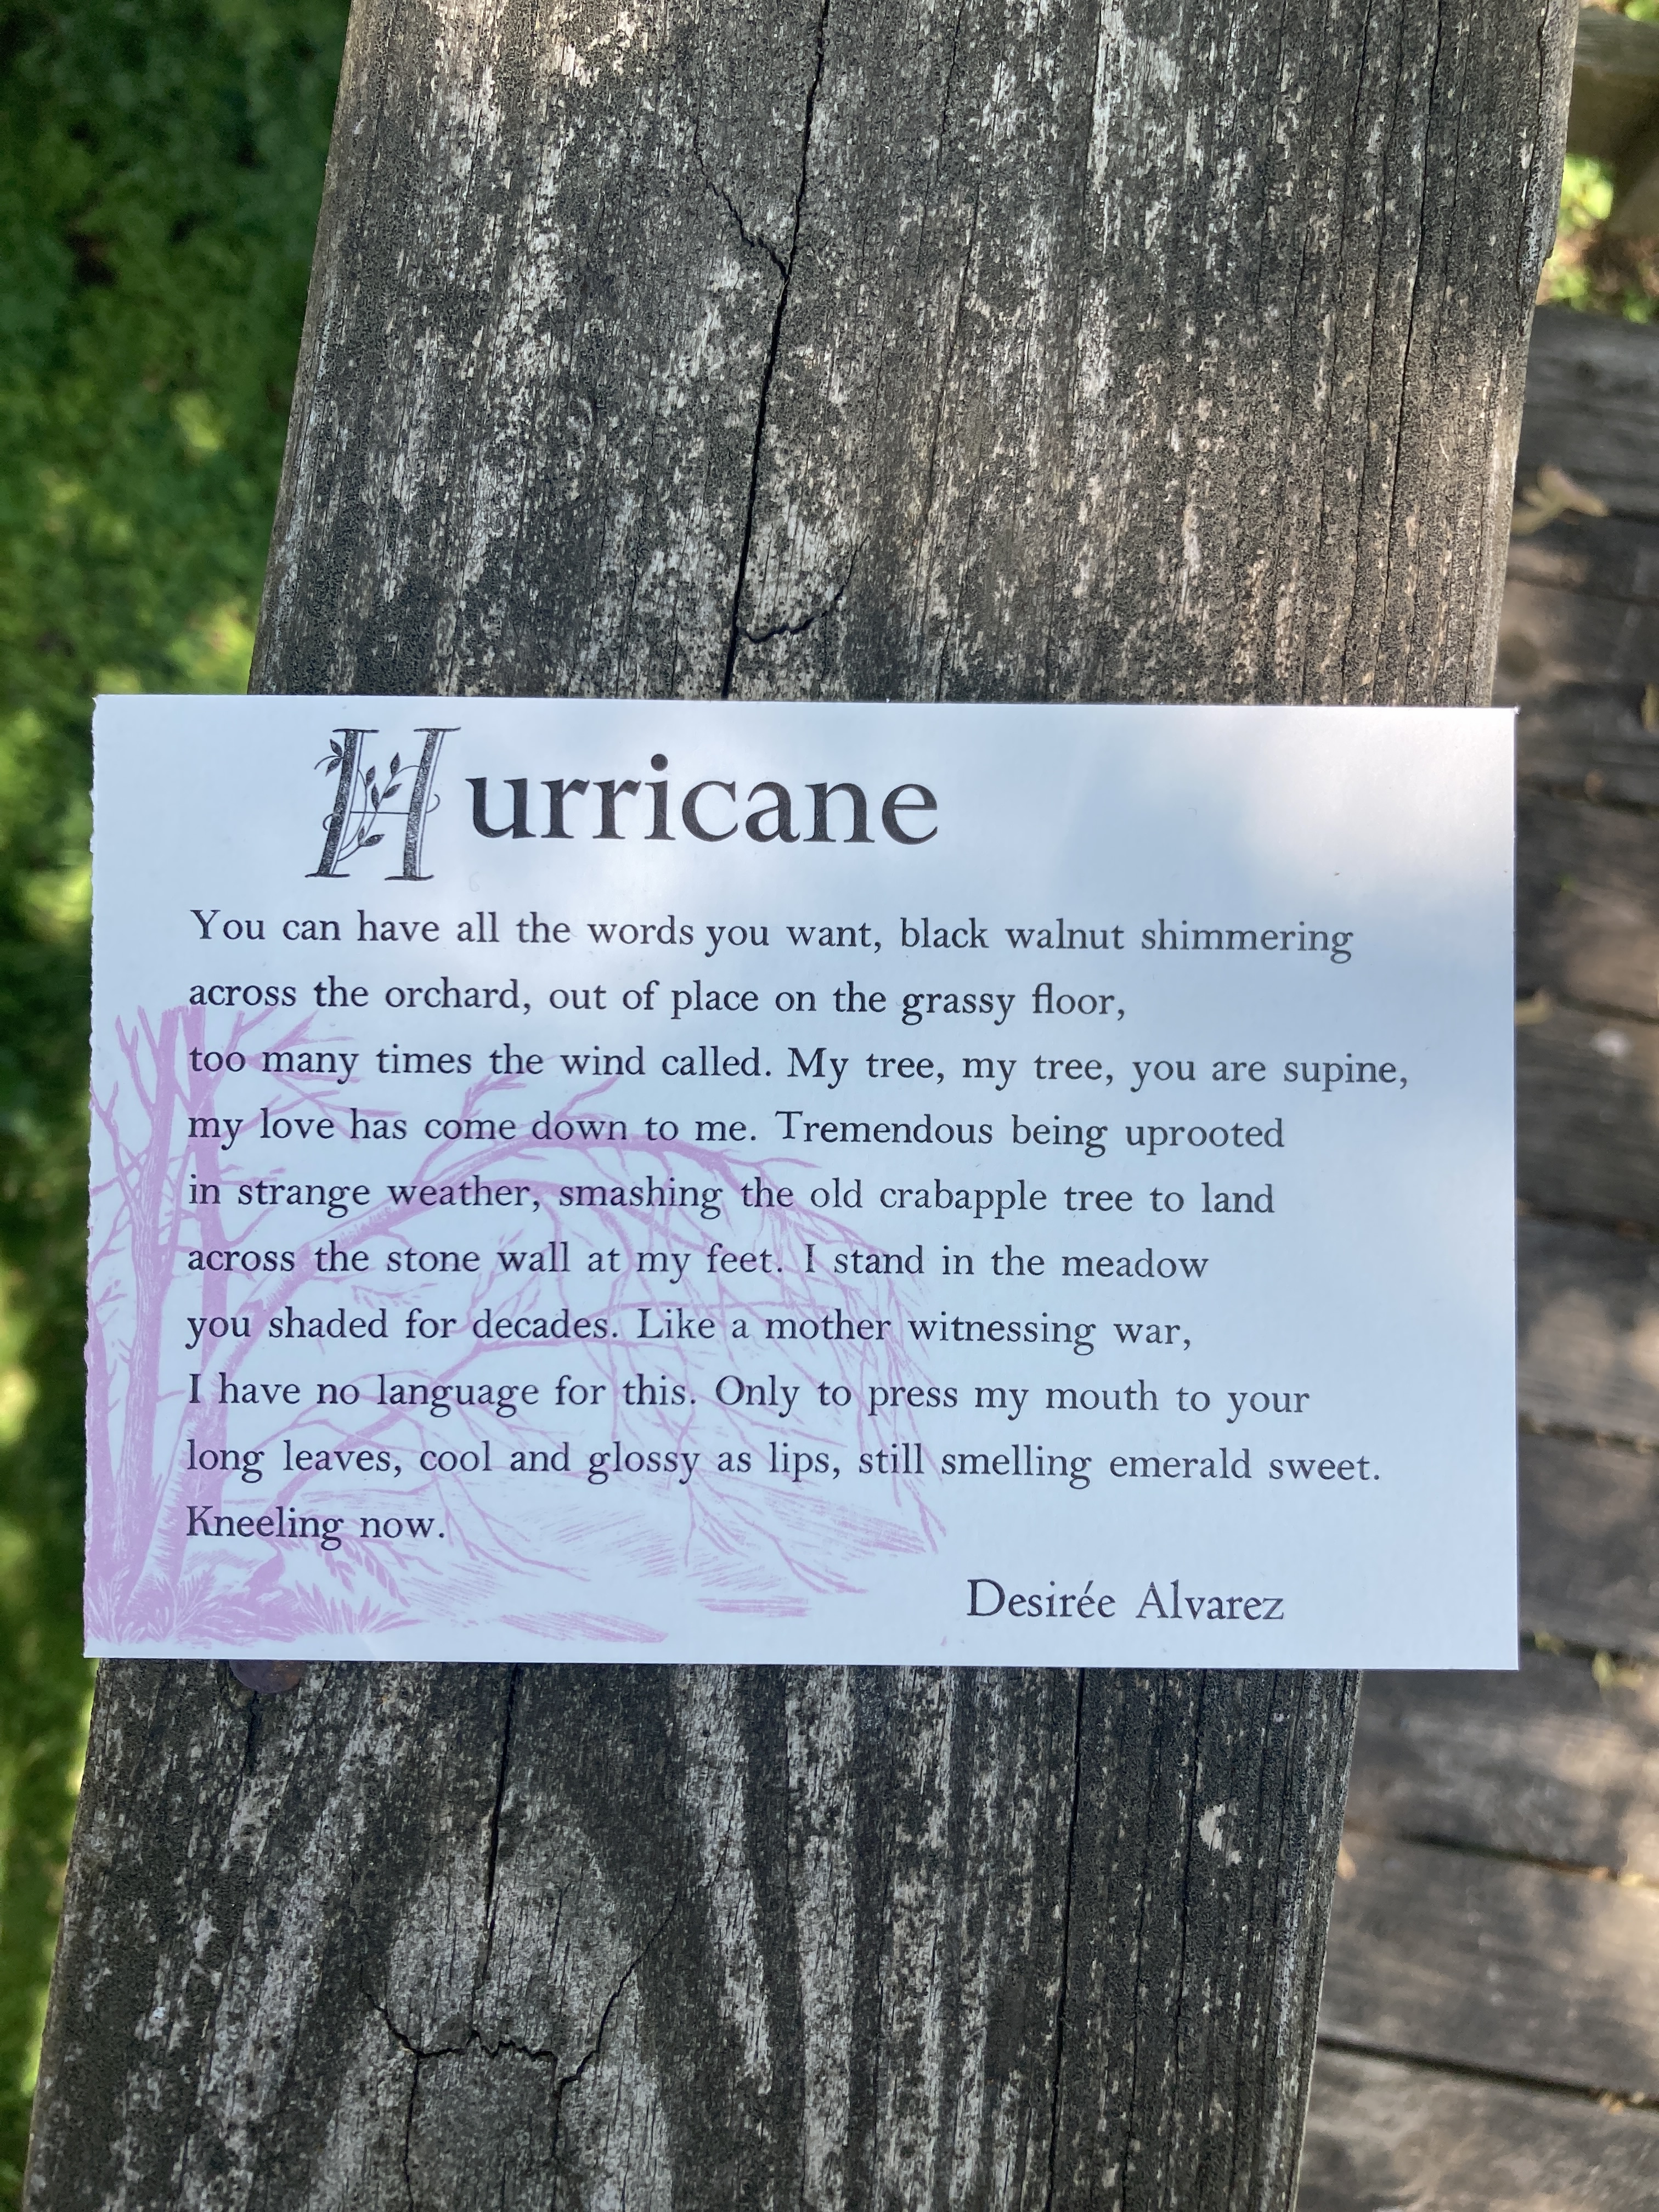 Hurricane
You can have all the words you want, black walnut shimmering
across the orchard, out of place on the grassy floor,
too many times the wind called. My tree, my tree, you are supine,
my love has come down to me. Tremendous being uprooted
in strange weather, smashing the old crabapple tree to land
across the stone wall at my feet. I stand in the meadow
you shaded for decades. Like a mother witnessing war,
I have no language for this. Only to press my mouth to your
long leaves, cool and glossy as lips, still smelling emerald sweet.
Kneeling now.
Desirée Alvarez